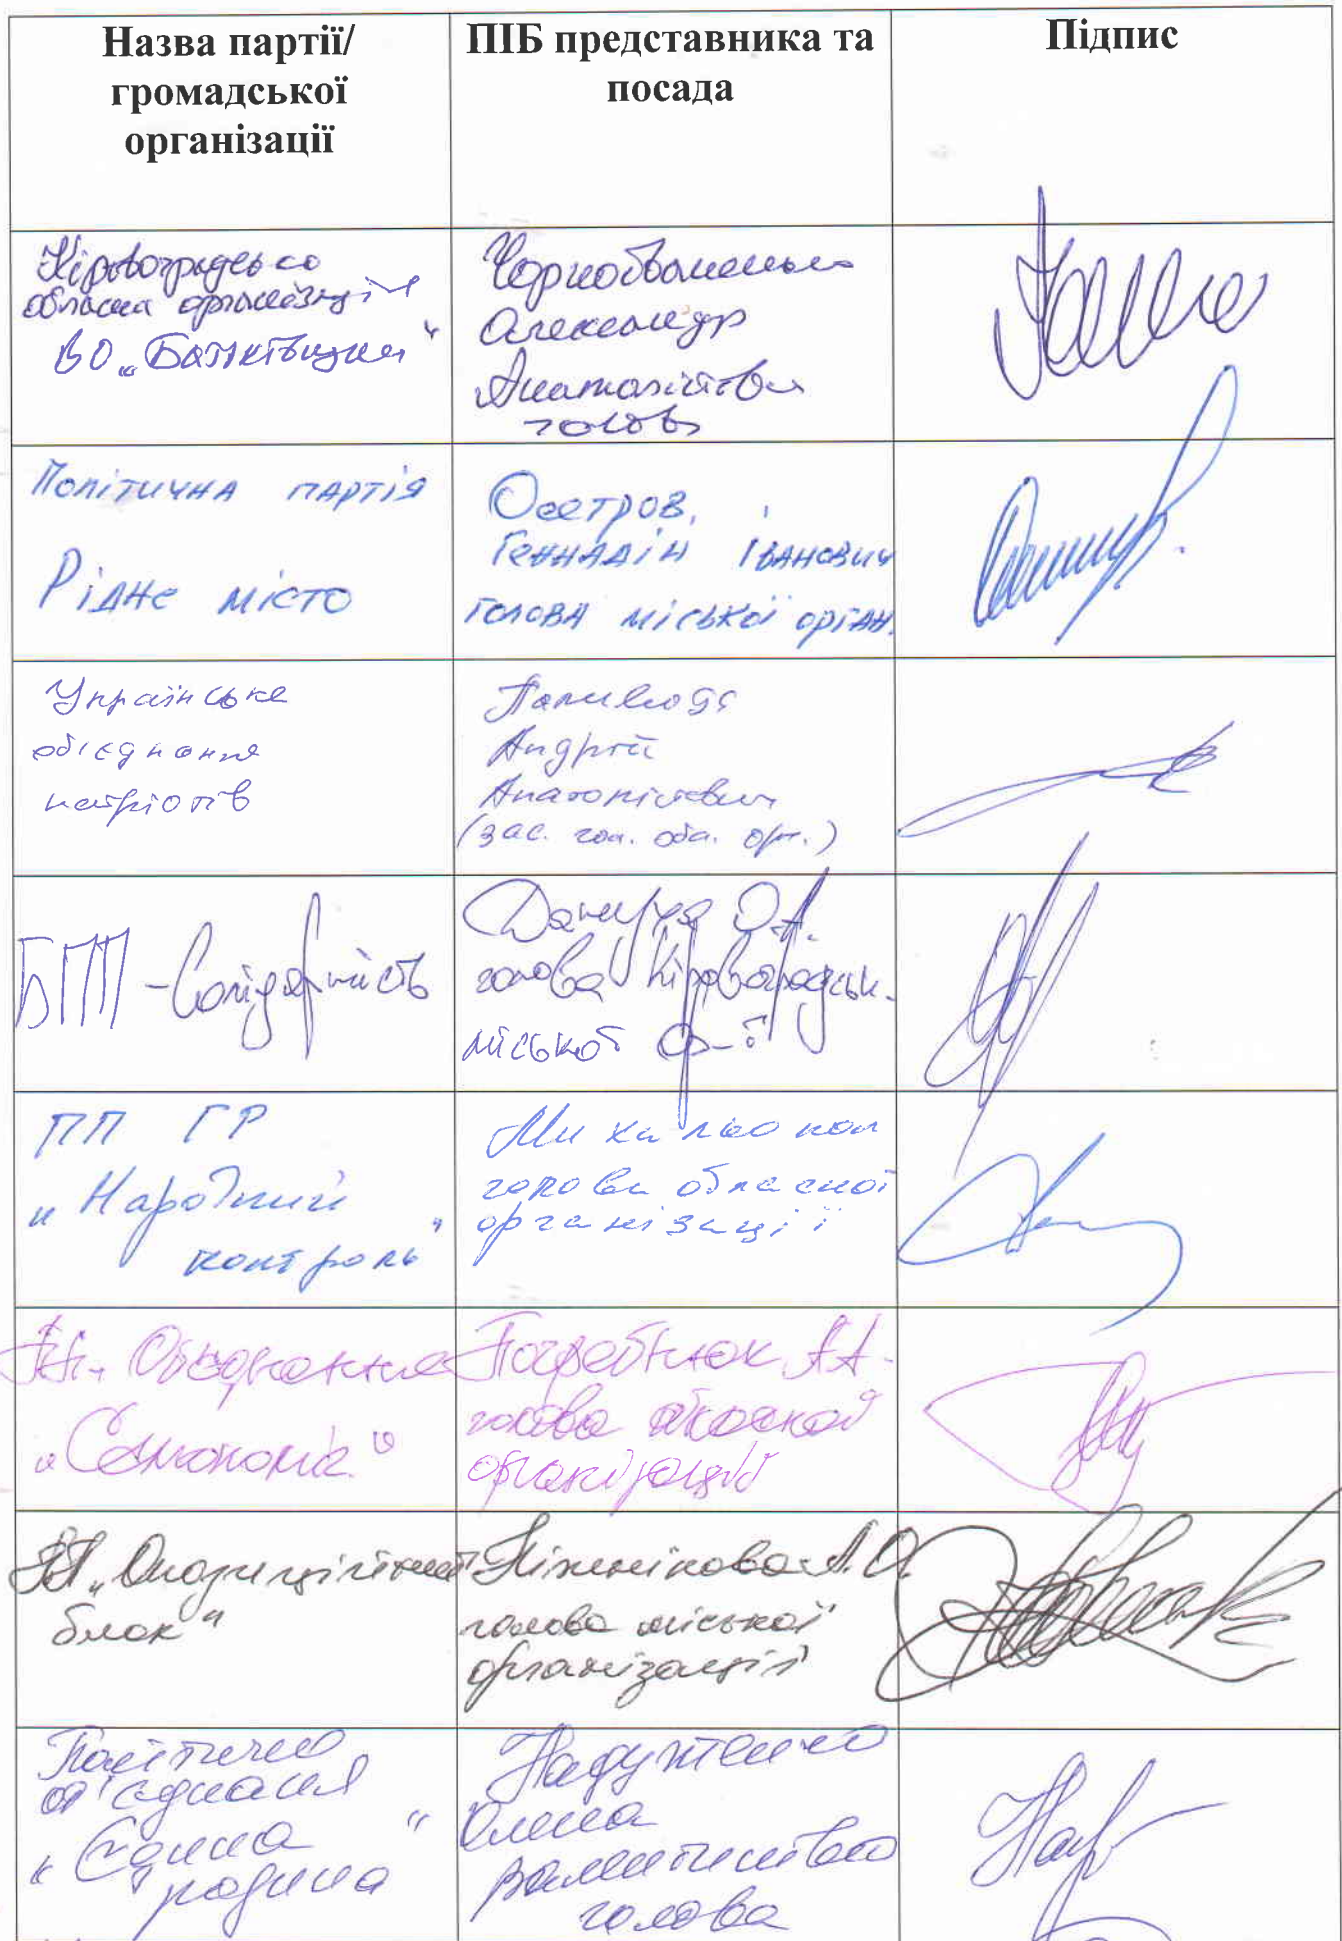 Назва партії/
громадської
організації
ПІБ представника та
посада
Підпис
Кіровоградська
обласна організація
ВО „Батьківщина“
Чорноіваненко
Александр
Анатолійович
голова
Політична партія
Рідне місто
Осетров,
Геннадій Іванович
голова міської орган.
Українське
об'єднання
патріотів
Паливода
Андрій
Анатолійович
(зас. гол. обл. орг.)
БПП - Солідарність
Дануца О.А.
голова Кіровоградськ.
міської о-ї
ПП ГР
„Народний
контроль“
Михальонок
голова обласної
організації
ПП. Обєднання
„Самопоміч“
Погребнюк А.А.
голова обласної
організації
ПП „Опозиційний
блок“
Ніжнікова А.О.
голова міської
організації
Політичне
об'єднаня
„Єдина
родина“
Надутенко
Олена
Валентинівна
голова